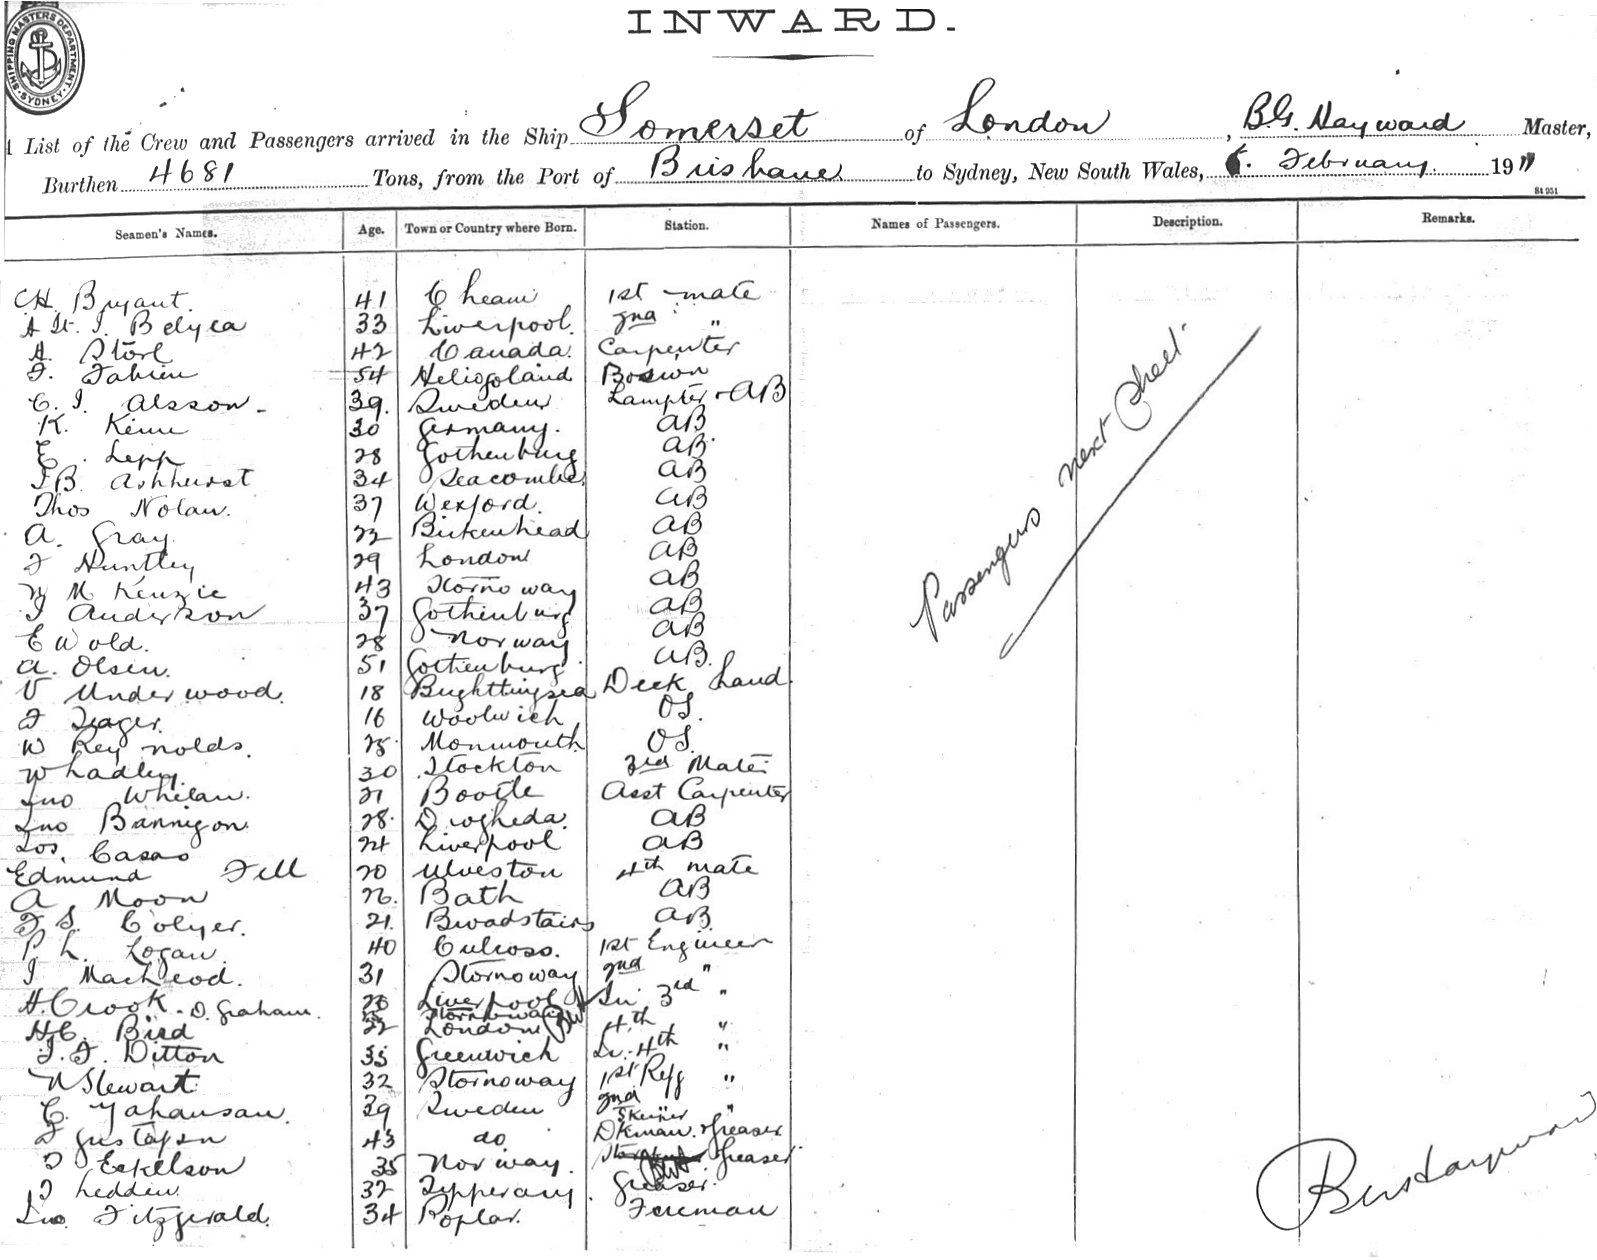 INWARD.
SHIPPING MASTERS DEPARTMENT SYDNEY
List of the Crew and Passengers arrived in the Ship Somerset of London, B.G. Hayward Master,
Burthen 4681 Tons, from the Port of Brisbane to Sydney, New South Wales, February 1911
St 951
Seamen's Names. Age. Town or Country where Born. Station. Names of Passengers. Description. Remarks.
CH. Bryant. 41 Cheam 1st mate
Belyea 33 Liverpool. 2nd "
A. Storl 42 Canada. Carpenter
F. Fabien 54 Heligoland Bosun
C. J. Alsson 39. Sweden Lampter & AB
K. Keine 30 Germany. AB
E. Lepp 28 Gothenburg AB
J B. Ashhurst 34 Seacombe AB
Thos Nolan. 37 Wexford. AB
A. Gray 22 Birkenhead AB
F Huntley 29 London AB
W McKenzie 43 Stornoway AB
J Anderson 37 Gothenburg AB
E Wold. 28 Norway AB
A. Olsen. 51 Gothenburg AB.
V Underwood. 18 Brighttingsea Deck hand
F Yeager. 16 Woolwich OS.
W Reynolds. 25 Monmouth OS.
W Hadley. 30 Stockton 3rd Mate
Jno Whelan. 21 Bootle Asst Carpenter
Jno Bannigon 28. Drogheda. AB
Jos. Casas 24 Liverpool AB
Edmund Fell 20 Ulveston 4th mate
A Moon 26. Bath AB
F S. Colyer. 21. Broadstairs AB.
P. L. Logan. 40 Culross. 1st Engineer
J MacLeod. 31 Stornoway 2nd "
H. Crook - D. Graham. Liverpool Stornoway 3rd "
H.C. Bird 22 London 4th "
J. F. Ditton 35 Greenwich 4th "
N Stewart 32 Stornoway 1st Refg "
C. Johansan. 39 Sweden 2nd "
J Gustafsn 43 do Dkman & Greaser
J Eskelson 35 Norway. Greaser
J Leddin 32 Tipperary. Greaser.
Jno. Fitzgerald. 34 Poplar. Fireman
Passengers next sheet.